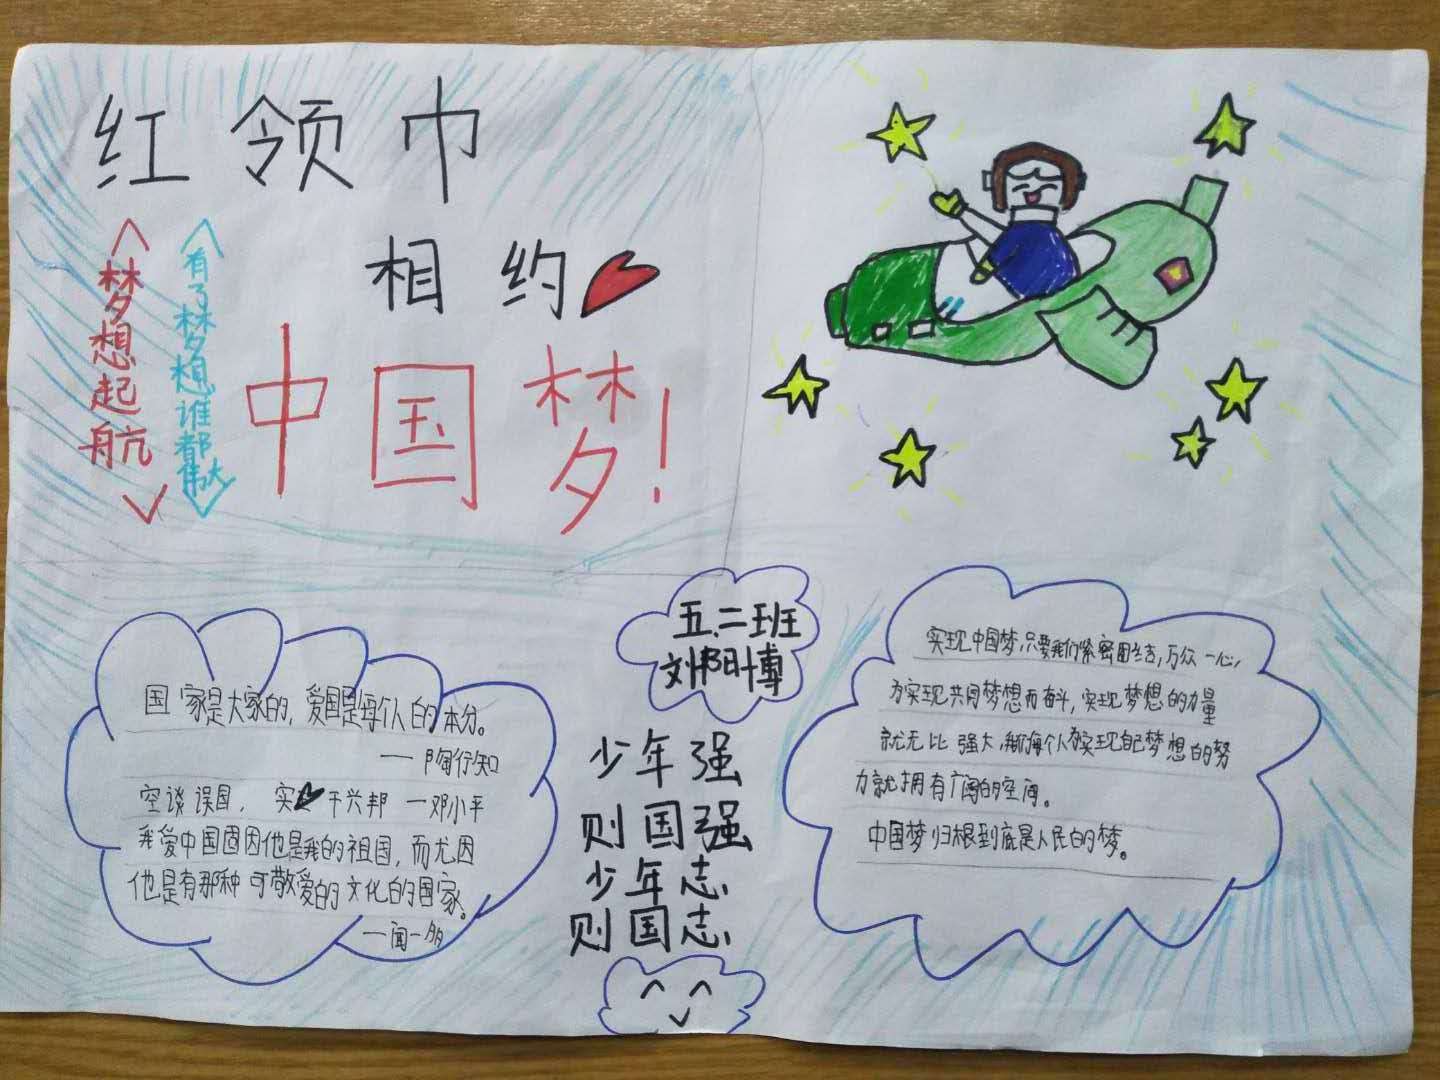 红领巾
相约
中国梦!
梦想起航
有了梦想谁都伟大
五.二班
刘邦旸博
国家是大家的,爱国是每个人的本分。
——陶行知
空谈误国,实干兴邦 —邓小平
我爱中国固因他是我的祖国,而尤因
他是有那种可敬爱的文化的国家。
—闻一多
少年强
则国强
少年志
则国志
实现中国梦,只要我们紧密团结,万众一心,
为实现共同梦想而奋斗,实现梦想的力量
就无比强大,我们每个人为实现自己梦想的努
力就拥有广阔的空间。
中国梦归根到底是人民的梦。